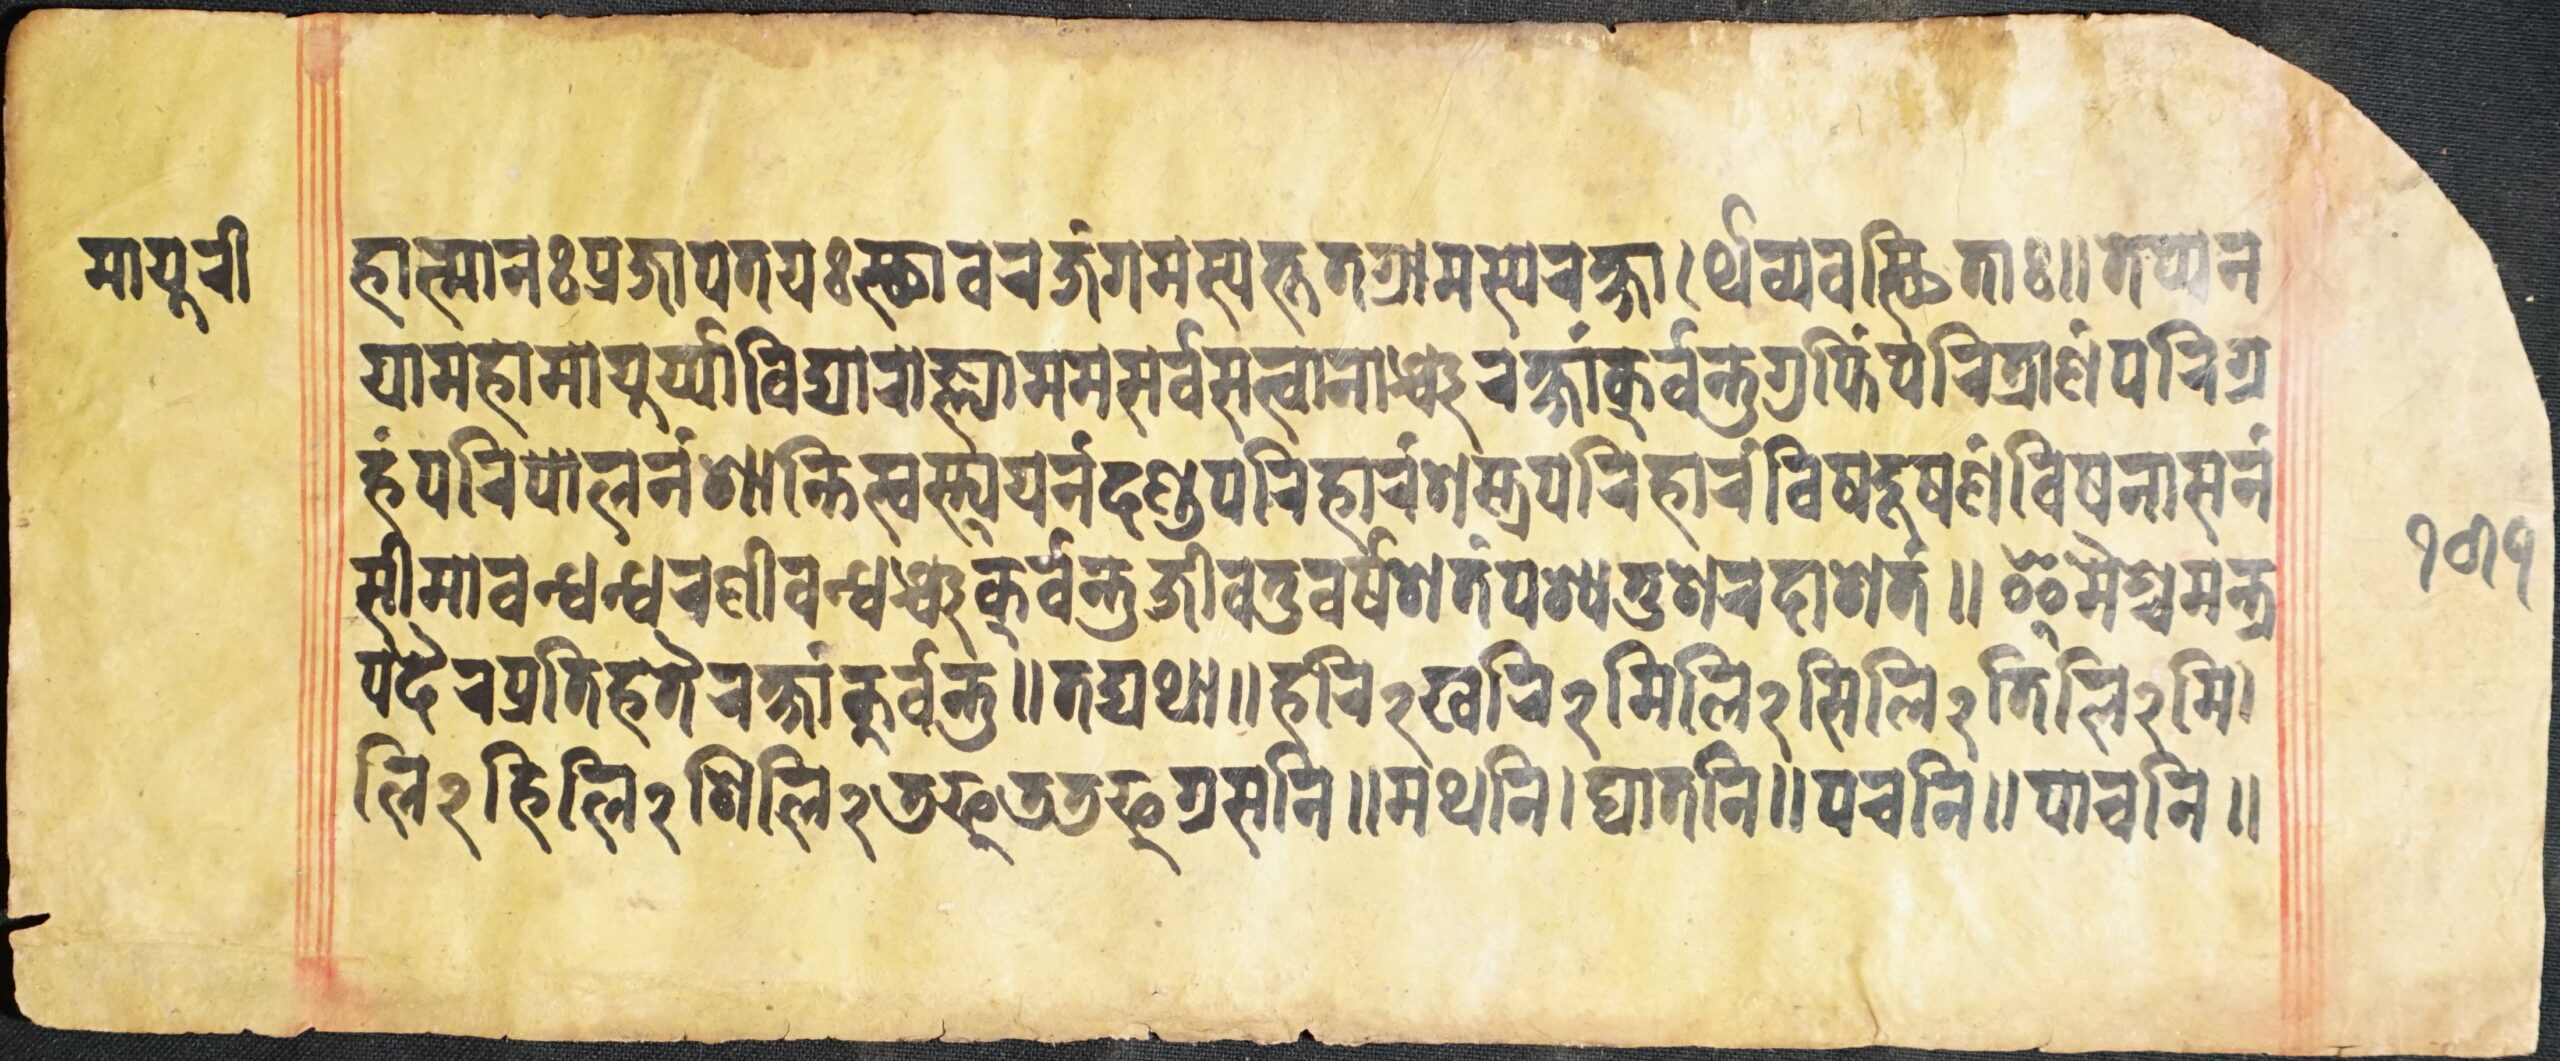 मायुरी
हात्मानःप्रजापतयःस्थावरजंगमस्यभूतग्रामस्यरक्षार्थव्यवस्थिताः॥तप्यन
यामहामायुर्य्याविद्याराज्ञ्याममसर्वसत्वानाञ्चरक्षांकुर्वन्तुगुप्तिंपरित्राणंपरिग्र
हंपरिपालनंशान्तिस्वस्त्ययनंदण्डपरिहारंशस्त्रपरिहारंविषदूषणंविषनासनं
सीमाबन्धन्धरणीबन्धञ्चकुर्वन्तुजीवतुवर्षशतंपश्यतुशरदाशतं॥ॐमैश्चमन्त्र
पदैरप्रतिहतैरक्षांकुर्वन्तु॥तद्यथा॥हरि२खरि२मिलि२सिलि२तिलि२मि।
लि२हिलि२शिलि२ ग्रसनि॥मथनि।घातनि॥पचनि॥पाचनि॥